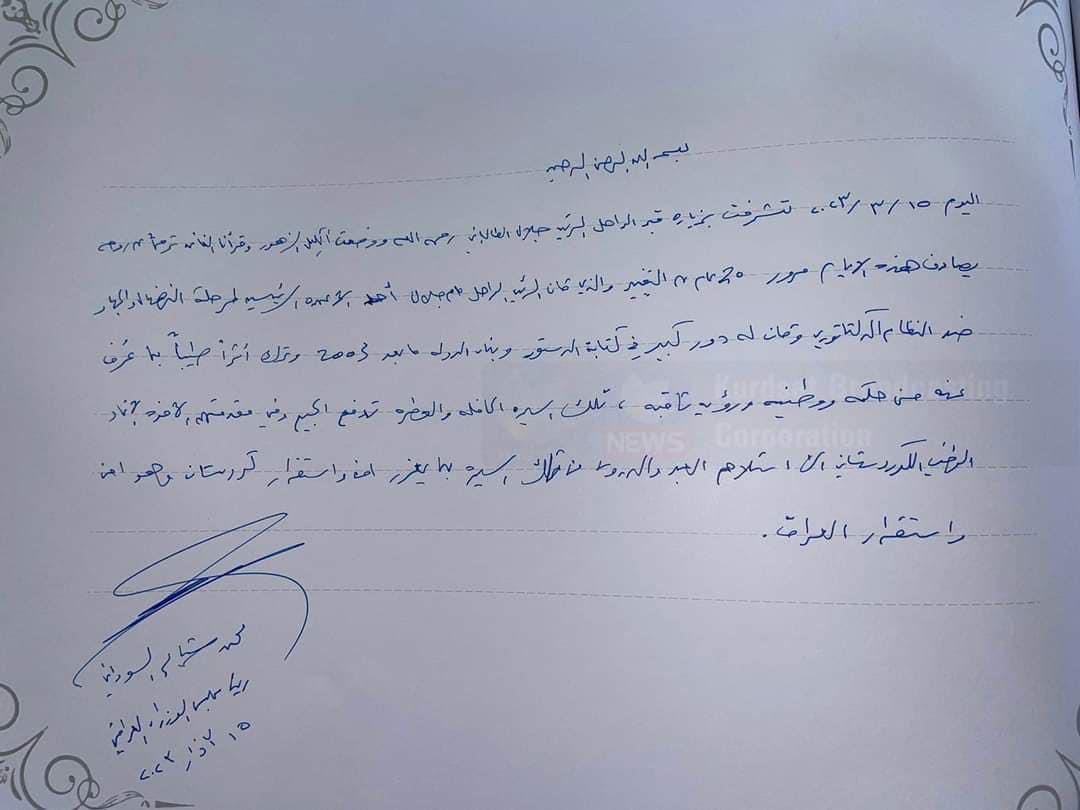 بسم الله الرحمن الرحيم
اليوم ١٥/٣/٢٠٢٣ تشرفت بزيارة قبر الراحل الرئيس جلال الطالباني رحمه الله ووضعت اكليل الزهور وقرأنا الفاتحة ترحماً على روحه
يصادف هذه الايام مرور 20 عام على التغيير والذي كان الرئيس الراحل مام جلال أحد الاعمدة الرئيسية لمرحلة النضال والجهاد
ضد النظام الدكتاتوري وكان له دور كبير في كتابة الدستور وبناء الدولة ما بعد 2003 وترك أثراً طيباً بما عُرف
عنه من حكمة ووطنية ورؤية ثاقبة ، تلك السيرة الكاملة والعطرة تدفع الجميع وفي مقدمتهم الاخوة الاتحاد
الوطني الكوردستاني الى استلهام العبر والدروس من تلك السيرة بما يعزز امن واستقرار كردستان وهو امن
واستقرار العراق.
محمد شياع السوداني
رئيس مجلس الوزراء العراقي
١٥ آذار ٢٠٢٣
Kurdsat Broadcasting
NEWS Corporation